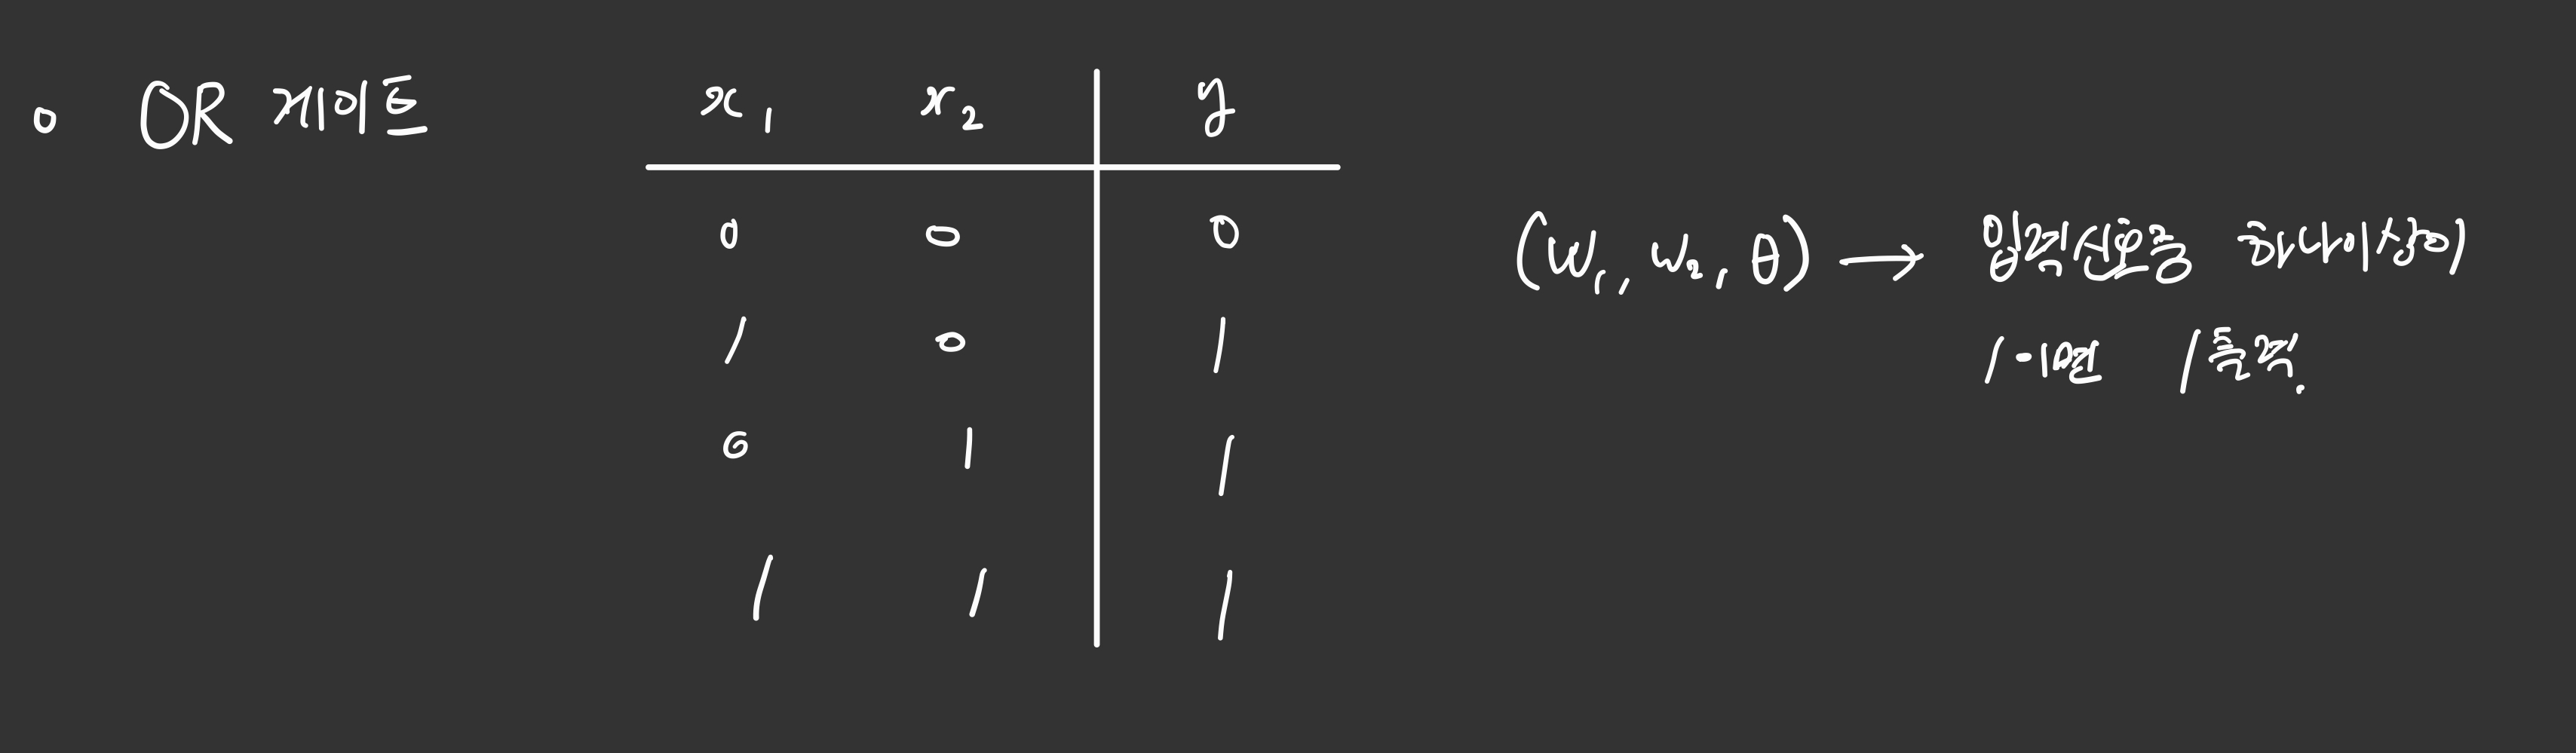 o OR 게이트
x₁ x₂ y
0 0 0
1 0 1
0 1 1
1 1 1
(w₁, w₂, θ) → 입력신호중 하나이상이
1이면 1출력.